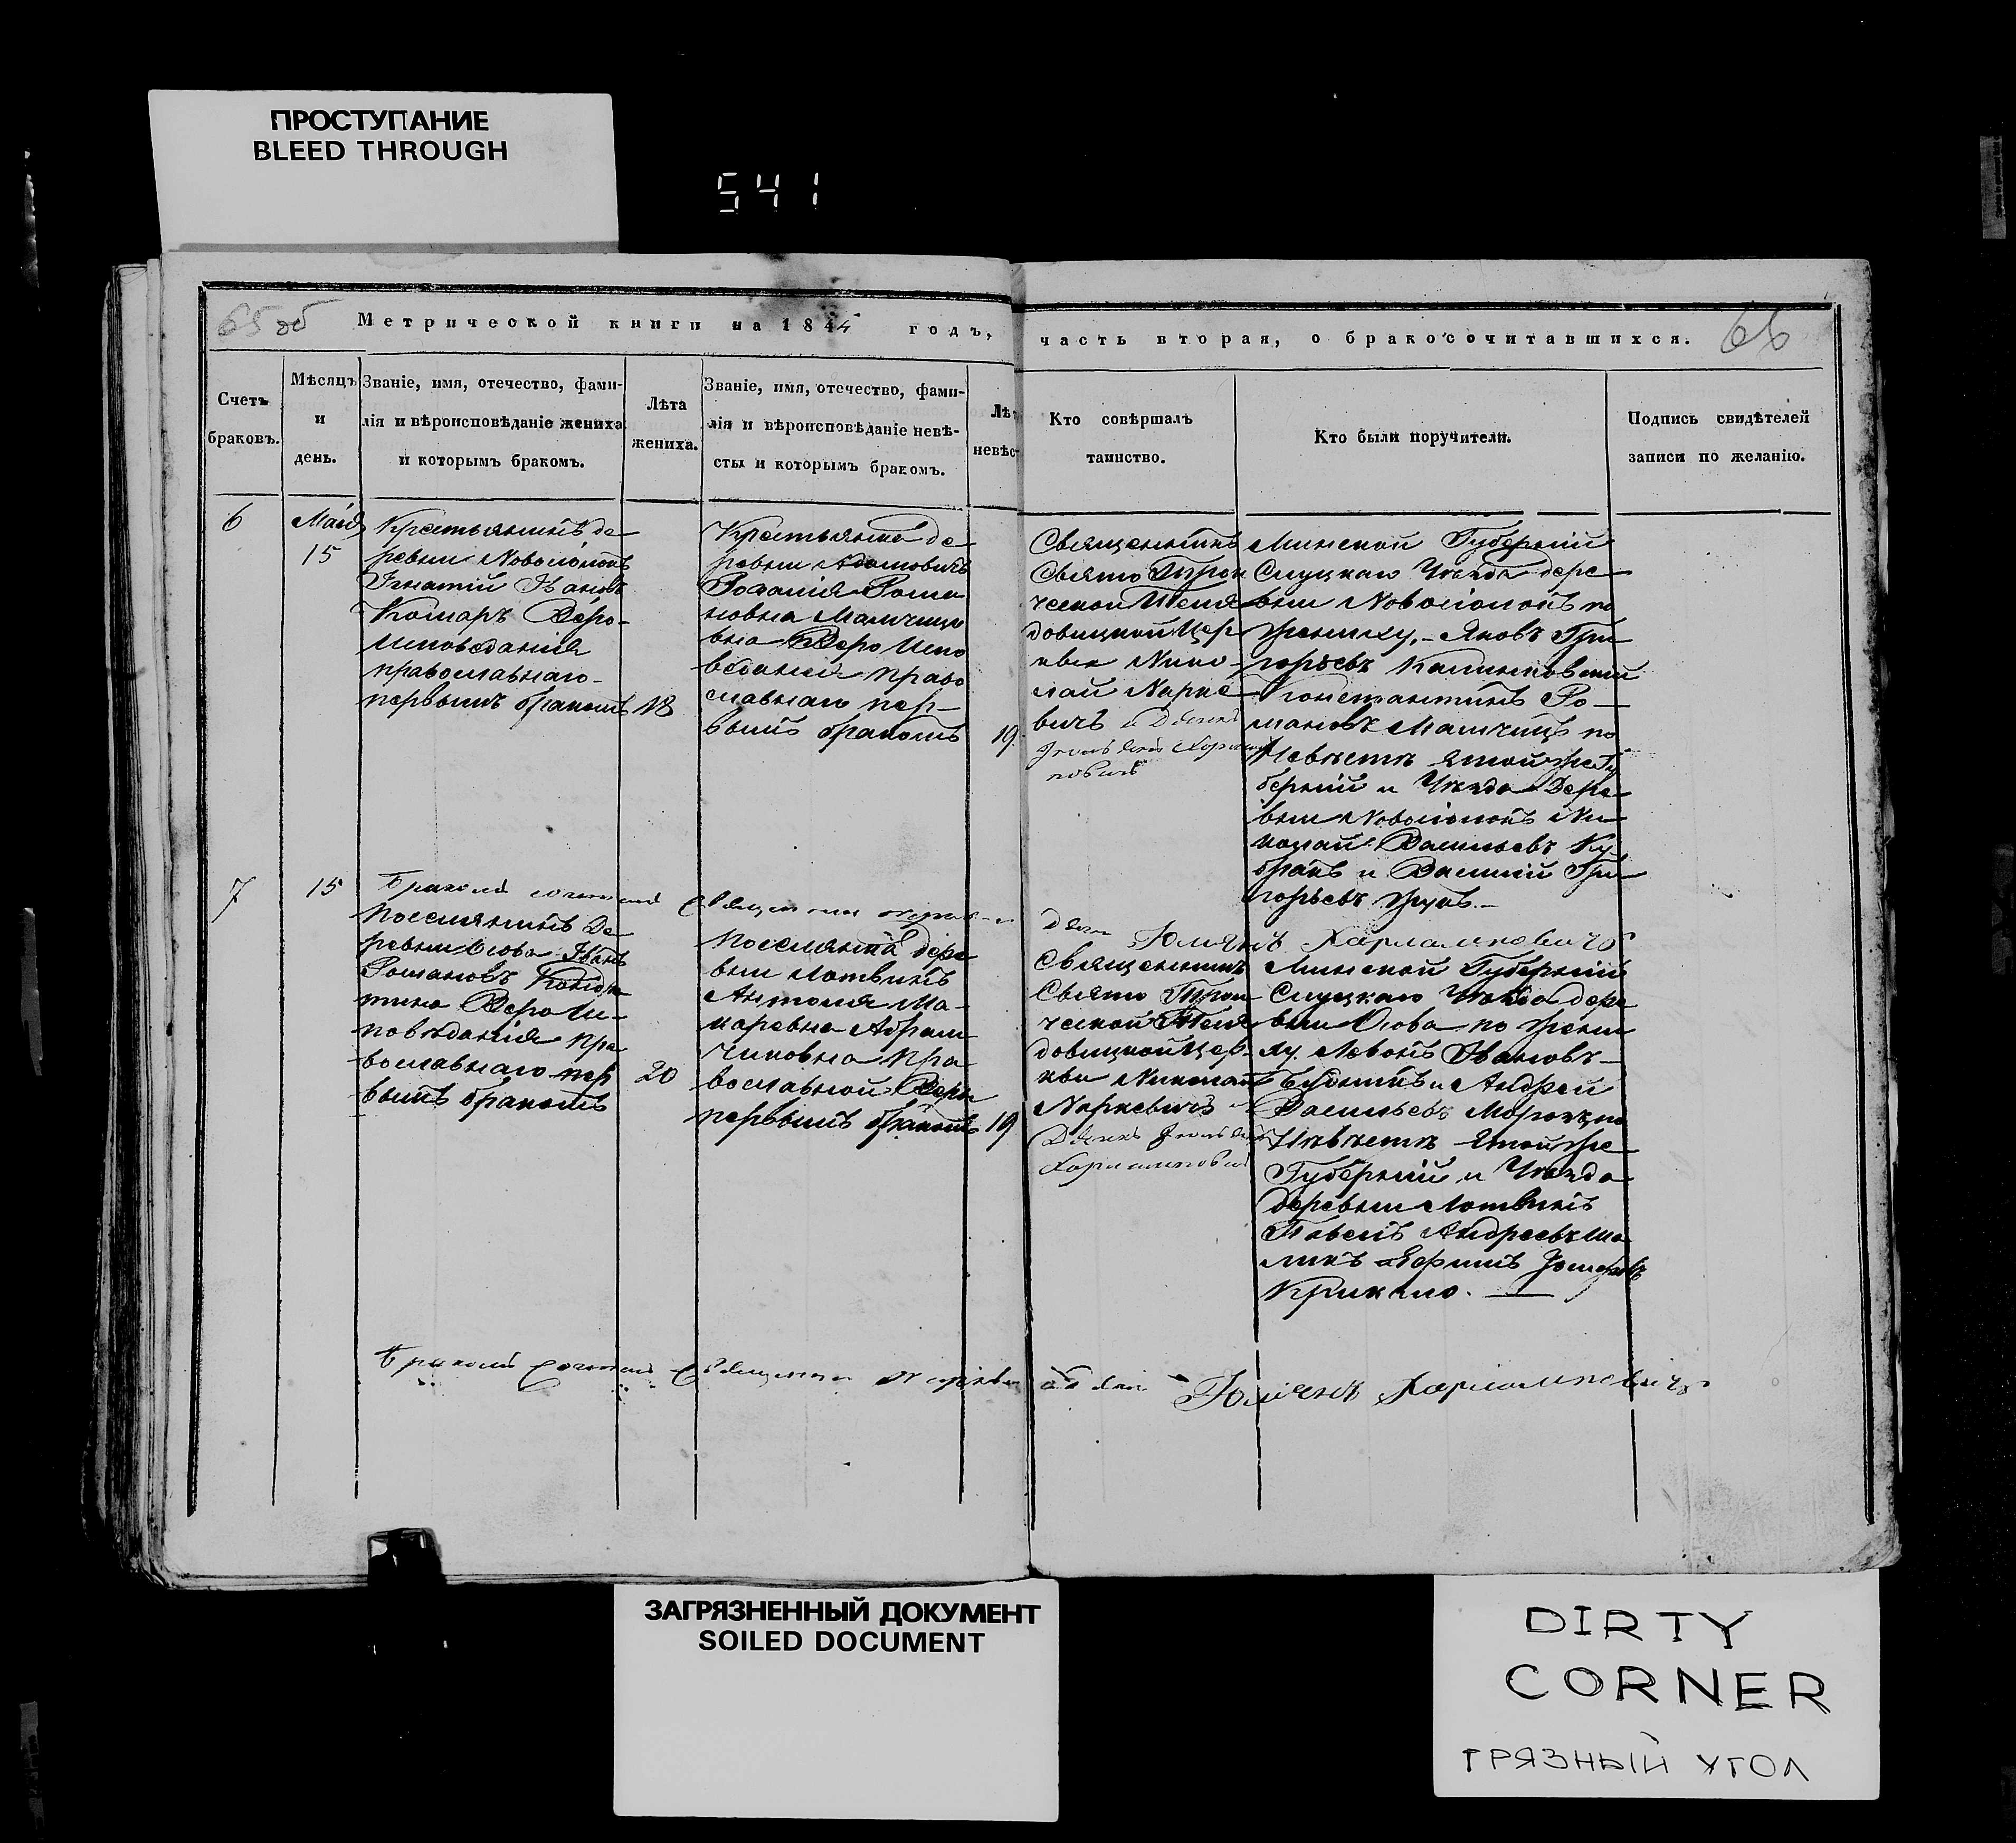 ПРОСТУПАНИЕ
BLEED THROUGH
541
65 об
Метрической книги на 1844 годъ,
часть вторая, о бракосочитавшихся.
66
Счетъ
браковъ.
Мѣсяцъ
и
день.
Званіе, имя, отечество, фами-
лія и вѣроисповѣданіе жениха
и которымъ бракомъ.
Лѣта
жениха.
Званіе, имя, отечество, фами-
лія и вѣроисповѣданіе невѣ-
сты и которымъ бракомъ.
Лѣт
невѣс
Кто совѣршалъ
таинство.
Кто были поручители.
Подпись свидѣтелей
записи по желанію.
6
Мая
15
Крестьянинъ де
ревни Новосіолокъ
Игнатій Ивановъ
Комаръ Веро-
исповеданія
православнаго
первымъ бракомъ
18
Крестьянка де
ревни Адамовичь
Розалія Рома
новна Мамчицо
вна Веро Испо
веданія право
славнаго пер-
вымъ бракомъ
19
Священникъ
Свято Трои
ческой
довицкой Цер
кви Нико-
лай Нарке
вичъ и Дьячекъ
Минской Губерніи
Слуцкаго Уезда дере
вни Новосіолокъ по
жениху, Яковъ Гри
горьевъ Калиновскій
Константинъ Ро-
мановъ Мамчицъ по
Невѣстѣ Ятой же Гу
берніи и Уезда Дере
вни Новосіолокъ Ни
колай Васильевъ Ку
бракъ и Василій Гри
горьевъ Жукъ.
Бракомъ сочеталъ Священникъ
Юліянъ Харлампович
7
15
Поселянинъ Де
ревни Осова Иванъ
Романовъ
Веро Ис-
повѣданія Пра
вославнаго пер
вымъ бракомъ
20
Поселянка дере
вни Лотвинъ
Антоля Ма-
каревна Абрам
чиковна Пра
вославной Веры
первымъ бракомъ
19
Священникъ
Свято Трои
ческой
довицкой Цер-
кви Николай
Наркевичъ и
Дьячекъ
Минской Губерніи
Слуцкаго Уезда дере
вни Осова по жени
ху Левонъ Ивановъ
и Андрей
Васильевъ
Невѣстѣ Ятой же
Губерніи и Уезда
деревни Лотвинъ
Павелъ Андреевъ
Ефимъ
Крикало.
Бракомъ Сочеталъ Священникъ
Юліянъ Харлампович
ЗАГРЯЗНЕННЫЙ ДОКУМЕНТ
SOILED DOCUMENT
DIRTY
CORNER
ГРЯЗНЫЙ УГОЛ